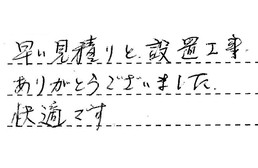 早い見積りと設置工事
ありがとうございました.
快適です